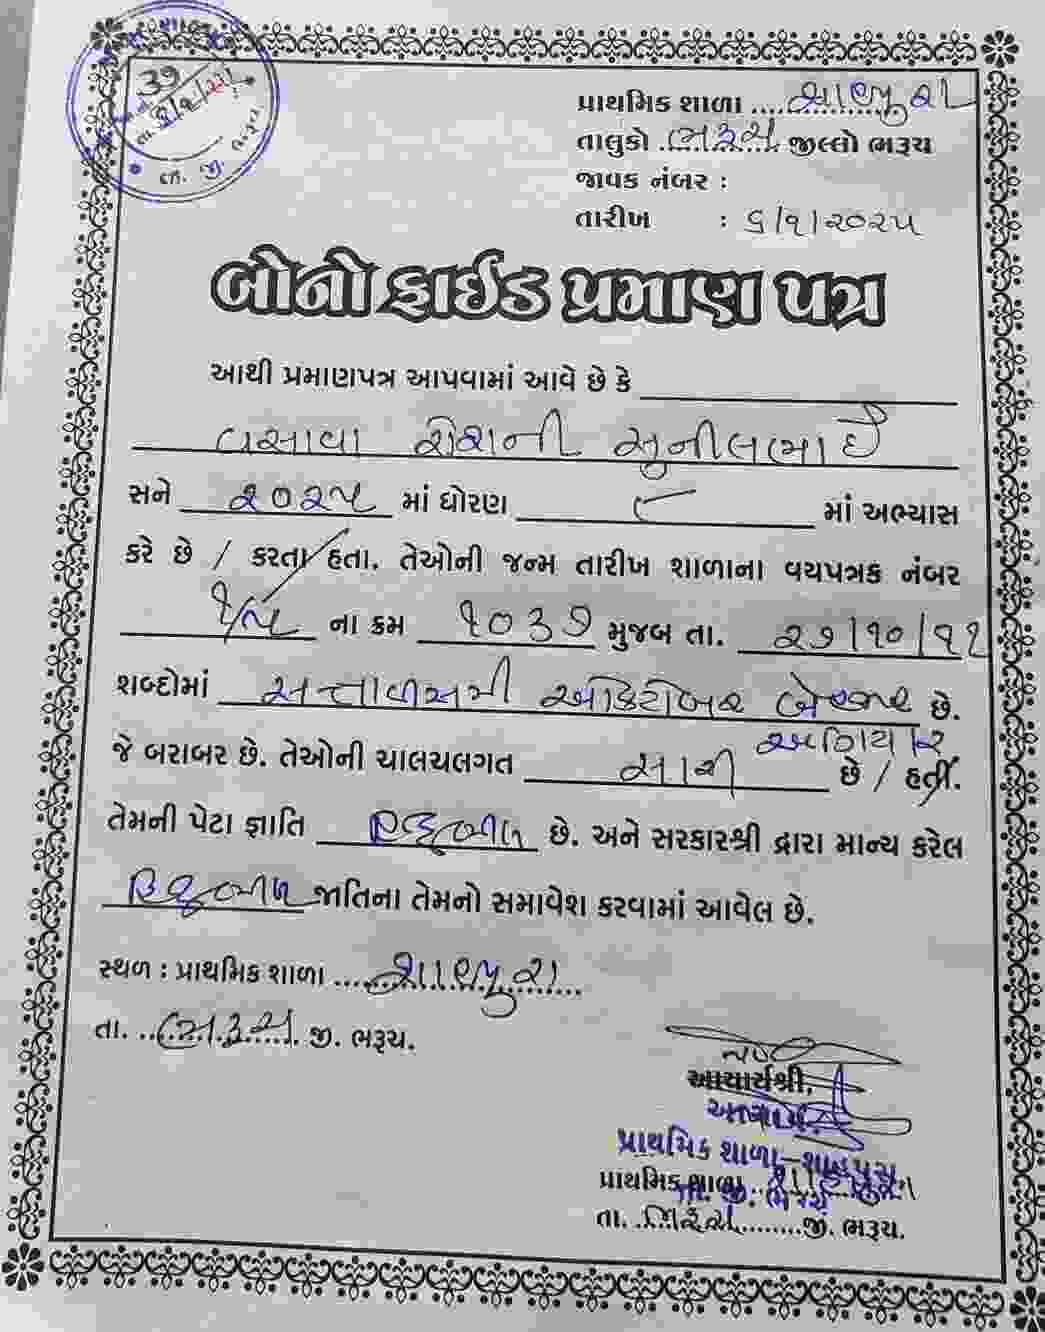 39
પ્રાથમિક શાળા
તાલુકો ભરૂચ જીલ્લો ભરૂચ
જાવક નંબર :
તારીખ : ૬/૧/૨૦૨૫
બોનોફાઈડ પ્રમાણ પત્ર
આથી પ્રમાણપત્ર આપવામાં આવે છે કે
વસાવા રોશની સુનીલભાઈ
સને ૨૦૨૫ માં ધોરણ ૮ માં અભ્યાસ
કરે છે / કરતા હતા. તેઓની જન્મ તારીખ શાળાના વયપત્રક નંબર
ના ક્રમ ૧૦૩૭ મુજબ તા. ૨૭/૧૦/૧૧
શબ્દોમાં સત્તાવીસમી ઓક્ટોબર બે હજાર છે.
અગિયાર
જે બરાબર છે. તેઓની ચાલચલગત સારી છે / હતી.
તેમની પેટા જ્ઞાતિ છે. અને સરકારશ્રી દ્વારા માન્ય કરેલ
જાતિના તેમનો સમાવેશ કરવામાં આવેલ છે.
સ્થળ : પ્રાથમિક શાળા
તા. ભરૂચ જી. ભરૂચ.
આચાર્યશ્રી,
આચાર્ય
પ્રાથમિક શાળા-શાહપુરા
પ્રાથમિક શાળા
તા. ભરૂચ જી. ભરૂચ.